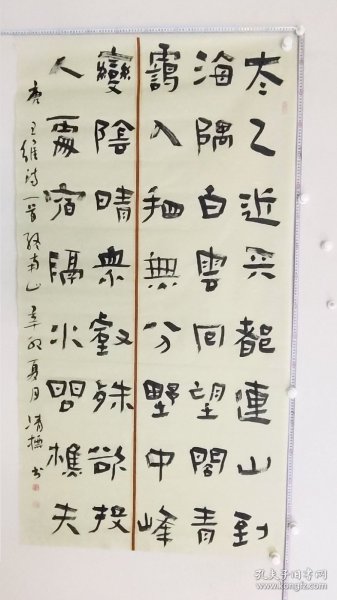 太乙近天都連山到
海隅白雲回望閤青
靄入看無分野中峰
變陰晴眾壑殊欲投
人處宿隔水問樵夫
唐王維诗一首终南山辛卯夏月清栖书
孔夫子旧书网